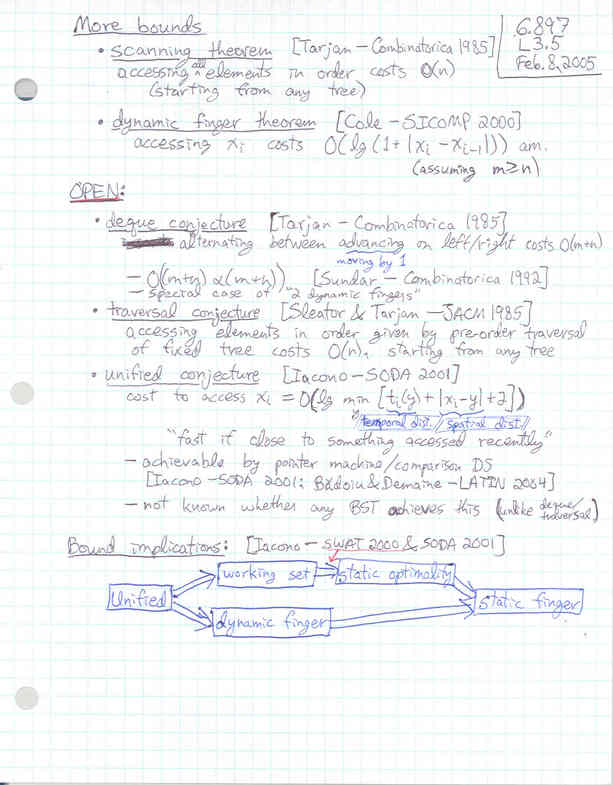 More bounds
6.897
L3.5
Feb. 8, 2005
• scanning theorem [Tarjan - Combinatorica 1985]
accessing all elements in order costs O(n)
(starting from any tree)
• dynamic finger theorem [Cole - SICOMP 2000]
accessing xᵢ costs O(lg (1+|xᵢ - xᵢ₋₁|)) am.
(assuming m≥n)
OPEN:
• deque conjecture [Tarjan - Combinatorica 1985]
alternating between advancing on left/right costs O(m+n)
moving by 1
- O((m+n) α(m+n)) [Sundar - Combinatorica 1992]
- special case of "2 dynamic fingers"
• traversal conjecture [Sleator & Tarjan - JACM 1985]
accessing elements in order given by pre-order traversal
of fixed tree costs O(n), starting from any tree
• unified conjecture [Iacono - SODA 2001]
cost to access xᵢ = O(lg min [tᵢ(y) + |xᵢ-y| + 2])
y
temporal dist. // spatial dist. //
"fast if close to something accessed recently"
- achievable by pointer machine/comparison DS
[Iacono - SODA 2001; Bădoiu & Demaine - LATIN 2004]
- not known whether any BST achieves this (unlike deque/traversal)
Bound implications: [Iacono - SWAT 2000 & SODA 2001]
working set
static optimality
Unified
static finger
dynamic finger